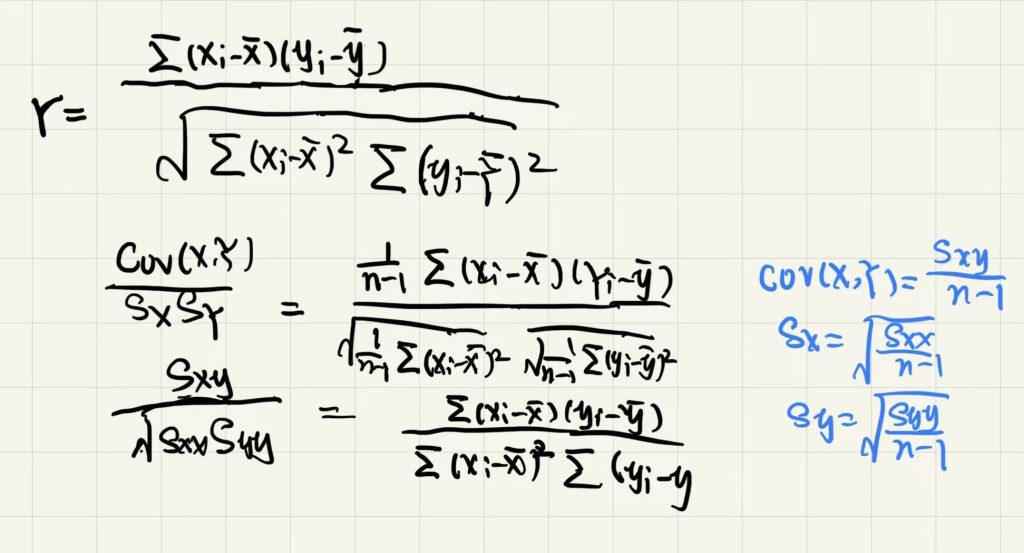 r = \frac{\sum (x_i - \bar{x})(y_i - \bar{y})}{\sqrt{\sum (x_i - \bar{x})^2 \sum (y_i - \bar{y})^2}}
\frac{Cov(x,y)}{S_x S_y} = \frac{\frac{1}{n-1} \sum (x_i - \bar{x})(y_i - \bar{y})}{\sqrt{\frac{1}{n-1} \sum (x_i - \bar{x})^2} \sqrt{\frac{1}{n-1} \sum (y_i - \bar{y})^2}}
\frac{S_{xy}}{\sqrt{S_{xx} S_{yy}}} = \frac{\sum (x_i - \bar{x})(y_i - \bar{y})}{\sum (x_i - \bar{x})^2 \sum (y_i - y}
Cov(x,y) = \frac{S_{xy}}{n-1}
S_x = \sqrt{\frac{S_{xx}}{n-1}}
S_y = \sqrt{\frac{S_{yy}}{n-1}}